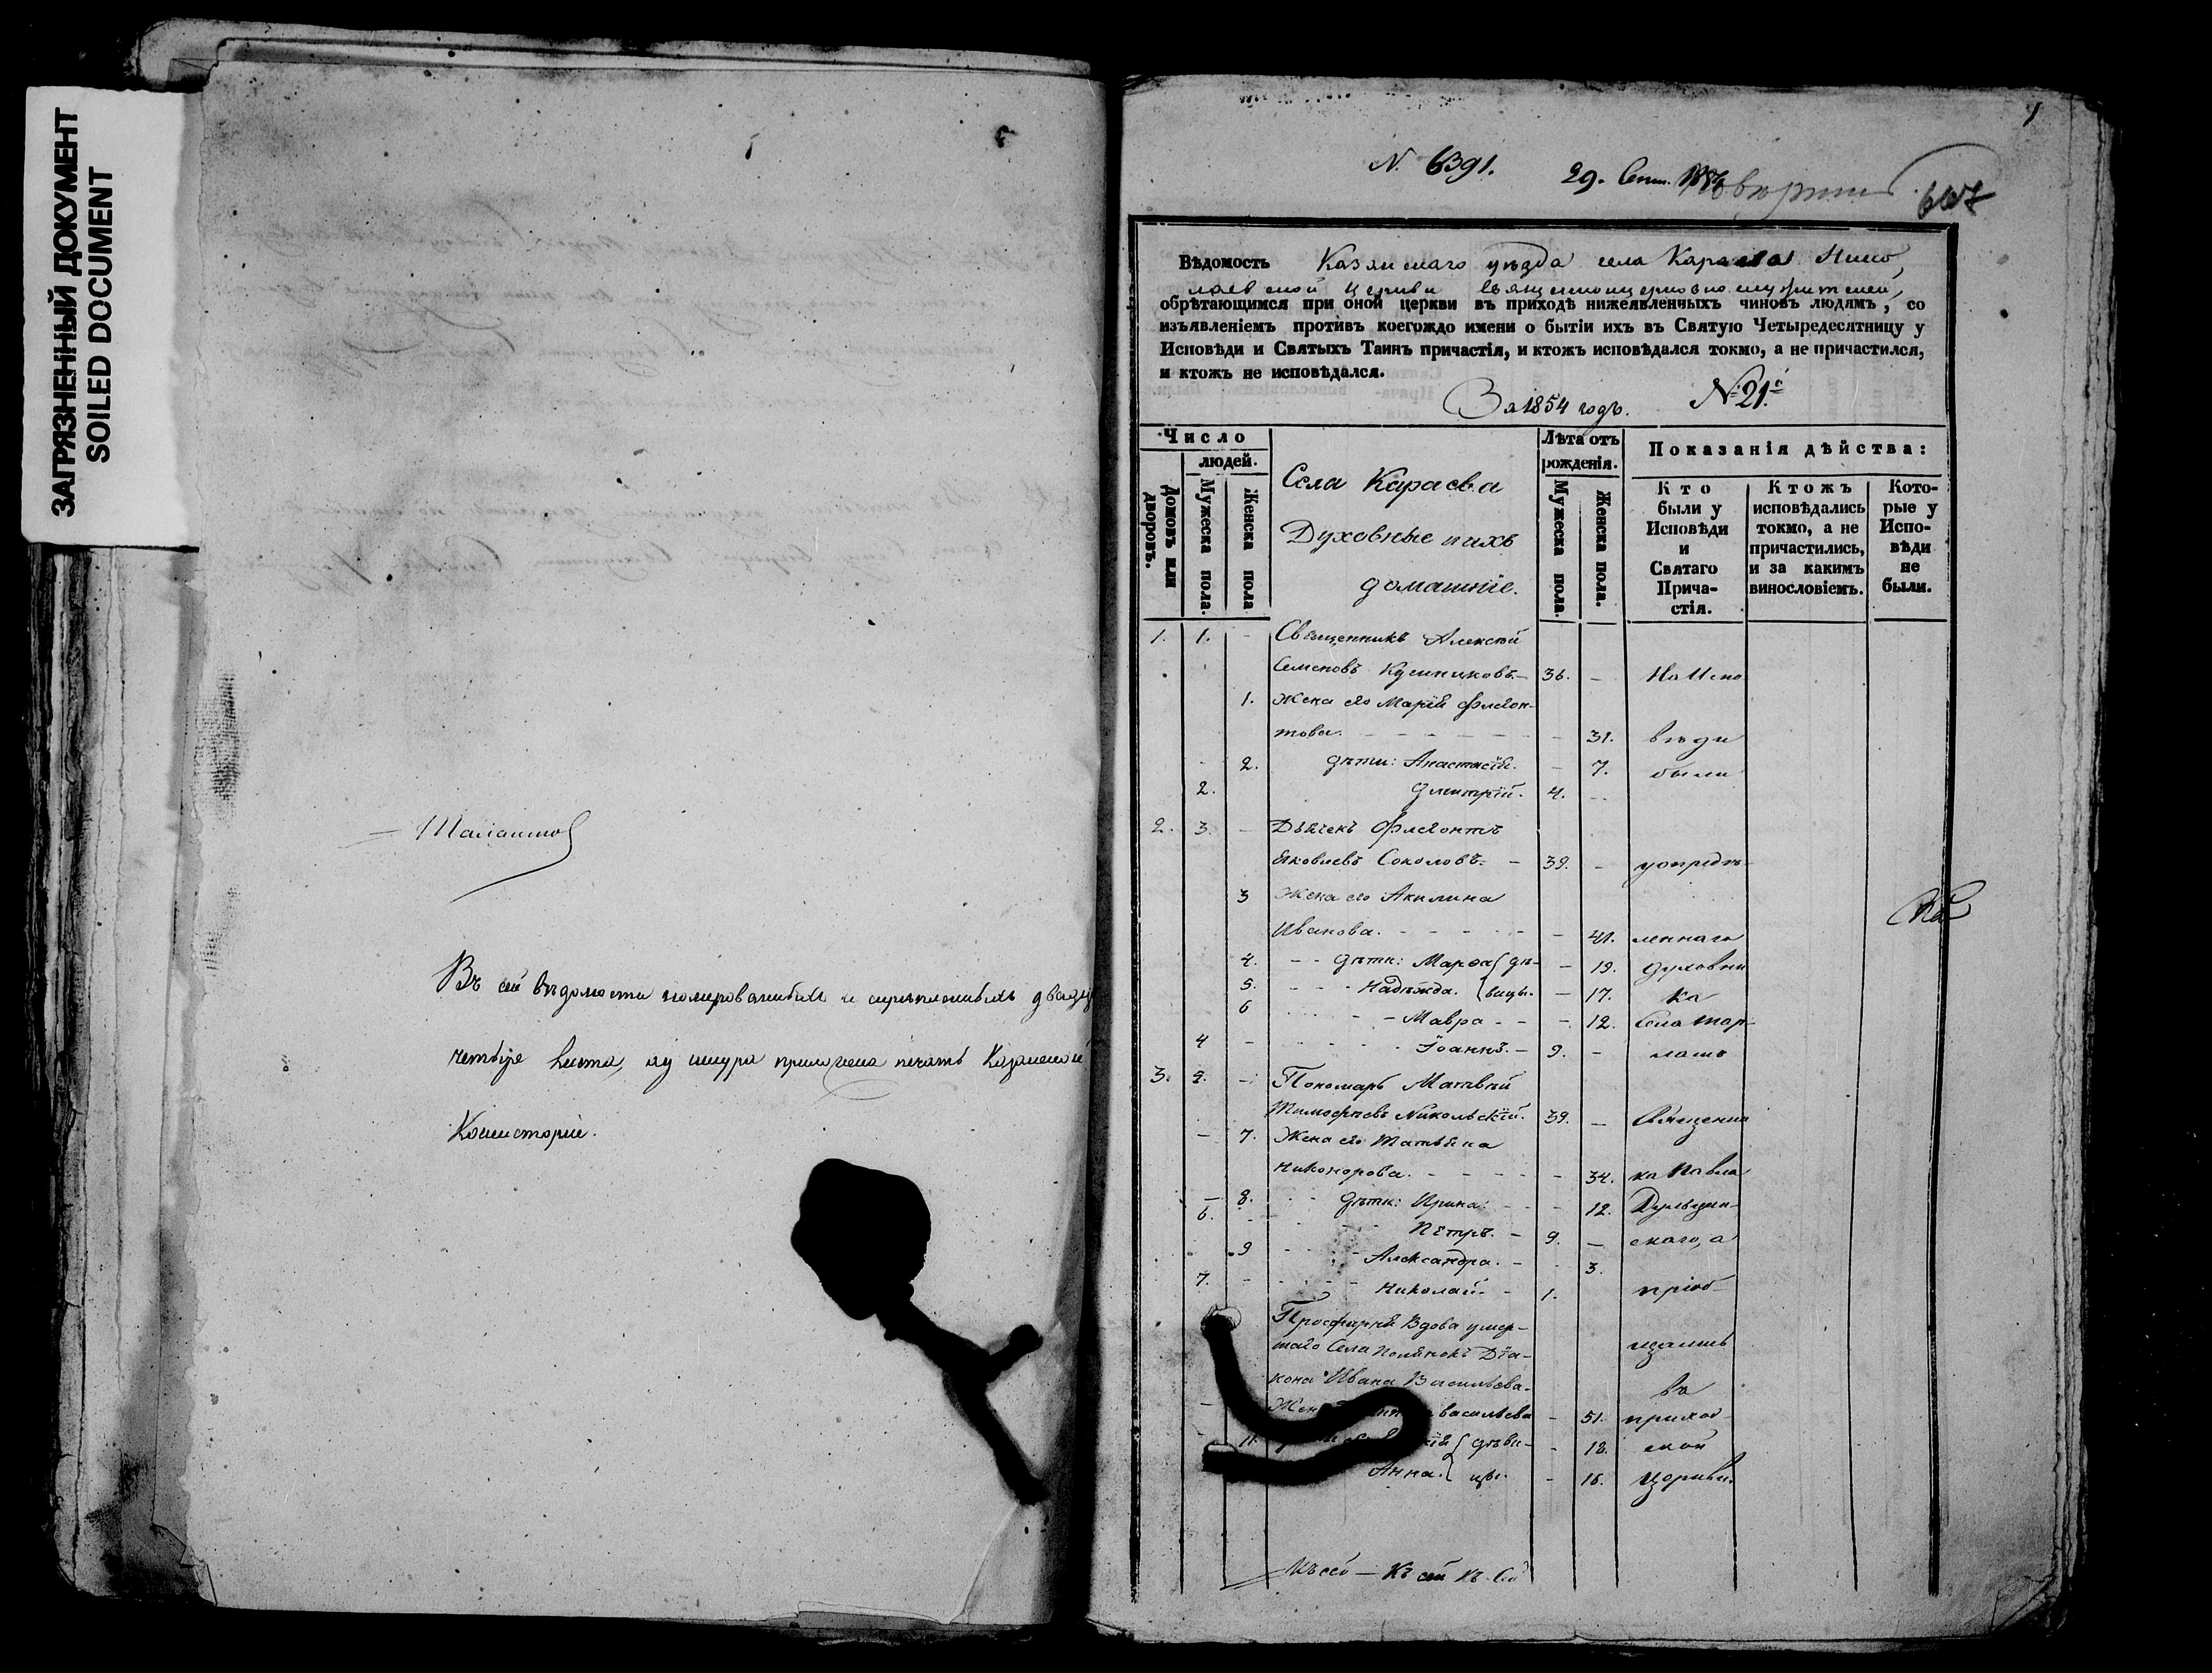 ЗАГРЯЗНЕННЫЙ ДОКУМЕНТ
SOILED DOCUMENT
Въ сей вѣдомости нумерованныхъ и скрѣпленныхъ двадц
четыре листа, ку шнура приложена печать Казанской
Консисторіи.
N. 6391.
29. Сент.
Вѣдомость Казанскаго уѣзда села Караева Нико
лаевской церкви священноцерковнослужителей,
обрѣтающимся при оной церкви въ приходѣ нижеявленныхъ чиновъ людямъ, со
изъявленіемъ противъ коегождо имени о бытіи ихъ въ Святую Четыредесятницу у
Исповѣди и Святыхъ Таинъ причастія, и ктожъ исповѣдался токмо, а не причастился,
и ктожъ не исповѣдался.
За 1854 годъ. №21й
Число
людей.
Домовъ или дворовъ.
Мужеска пола.
Женска пола
Села Караева
Духовные и ихъ
домашніе.
Лѣта отъ рожденія.
Мужеска пола.
Женска пола.
Показанія дѣйства:
Кто были у Исповѣди и Святаго Причастія.
Ктожъ исповѣдались токмо, а не причастились, и за какимъ винословіемъ.
Которые у Исповѣди не были.
1. 1. - Священникъ Алексѣй
Семеновъ 36. - На Испо
1. Жена его Марія Флегон-
това. - 31. вѣди
2. дѣти: Анастасія. - 7. были
2. Дмитрій. 4. -
2. 3. - Дьячекъ Флегонтъ
Яковлевъ Соколовъ. - 39. - у опредѣ-
3 Жена его Акилина
Иванова. - 41. леннаго
4. - - дѣти: Марѳа { дѣ- - 19. духовни
5. - - - Надежда. { вицы. - 17. ка
6 - - Мавра - - - 12. села Тар-
4 - Іоаннъ. - 9. - лашъ
3. - Пономарь Матвѣй
Тимофѣевъ Никольскій. 39. - Священни
- 7. Жена его Татьяна
Никонорова. - 34. ка Павла
- 8. дѣти: Ирина. - - 12.
6. Петръ. - 9. - скаго, а
9 Александра. - 3.
7. - Николай. - 1. пріоб-
Просфирня Вдова умер-
шаго Села Полянокъ Діа- щались
кона Ивана Васильева- въ
васильева - 51. приход-
11. { дѣви- - 18. ской
Анна. { цы. - 16. церкви.